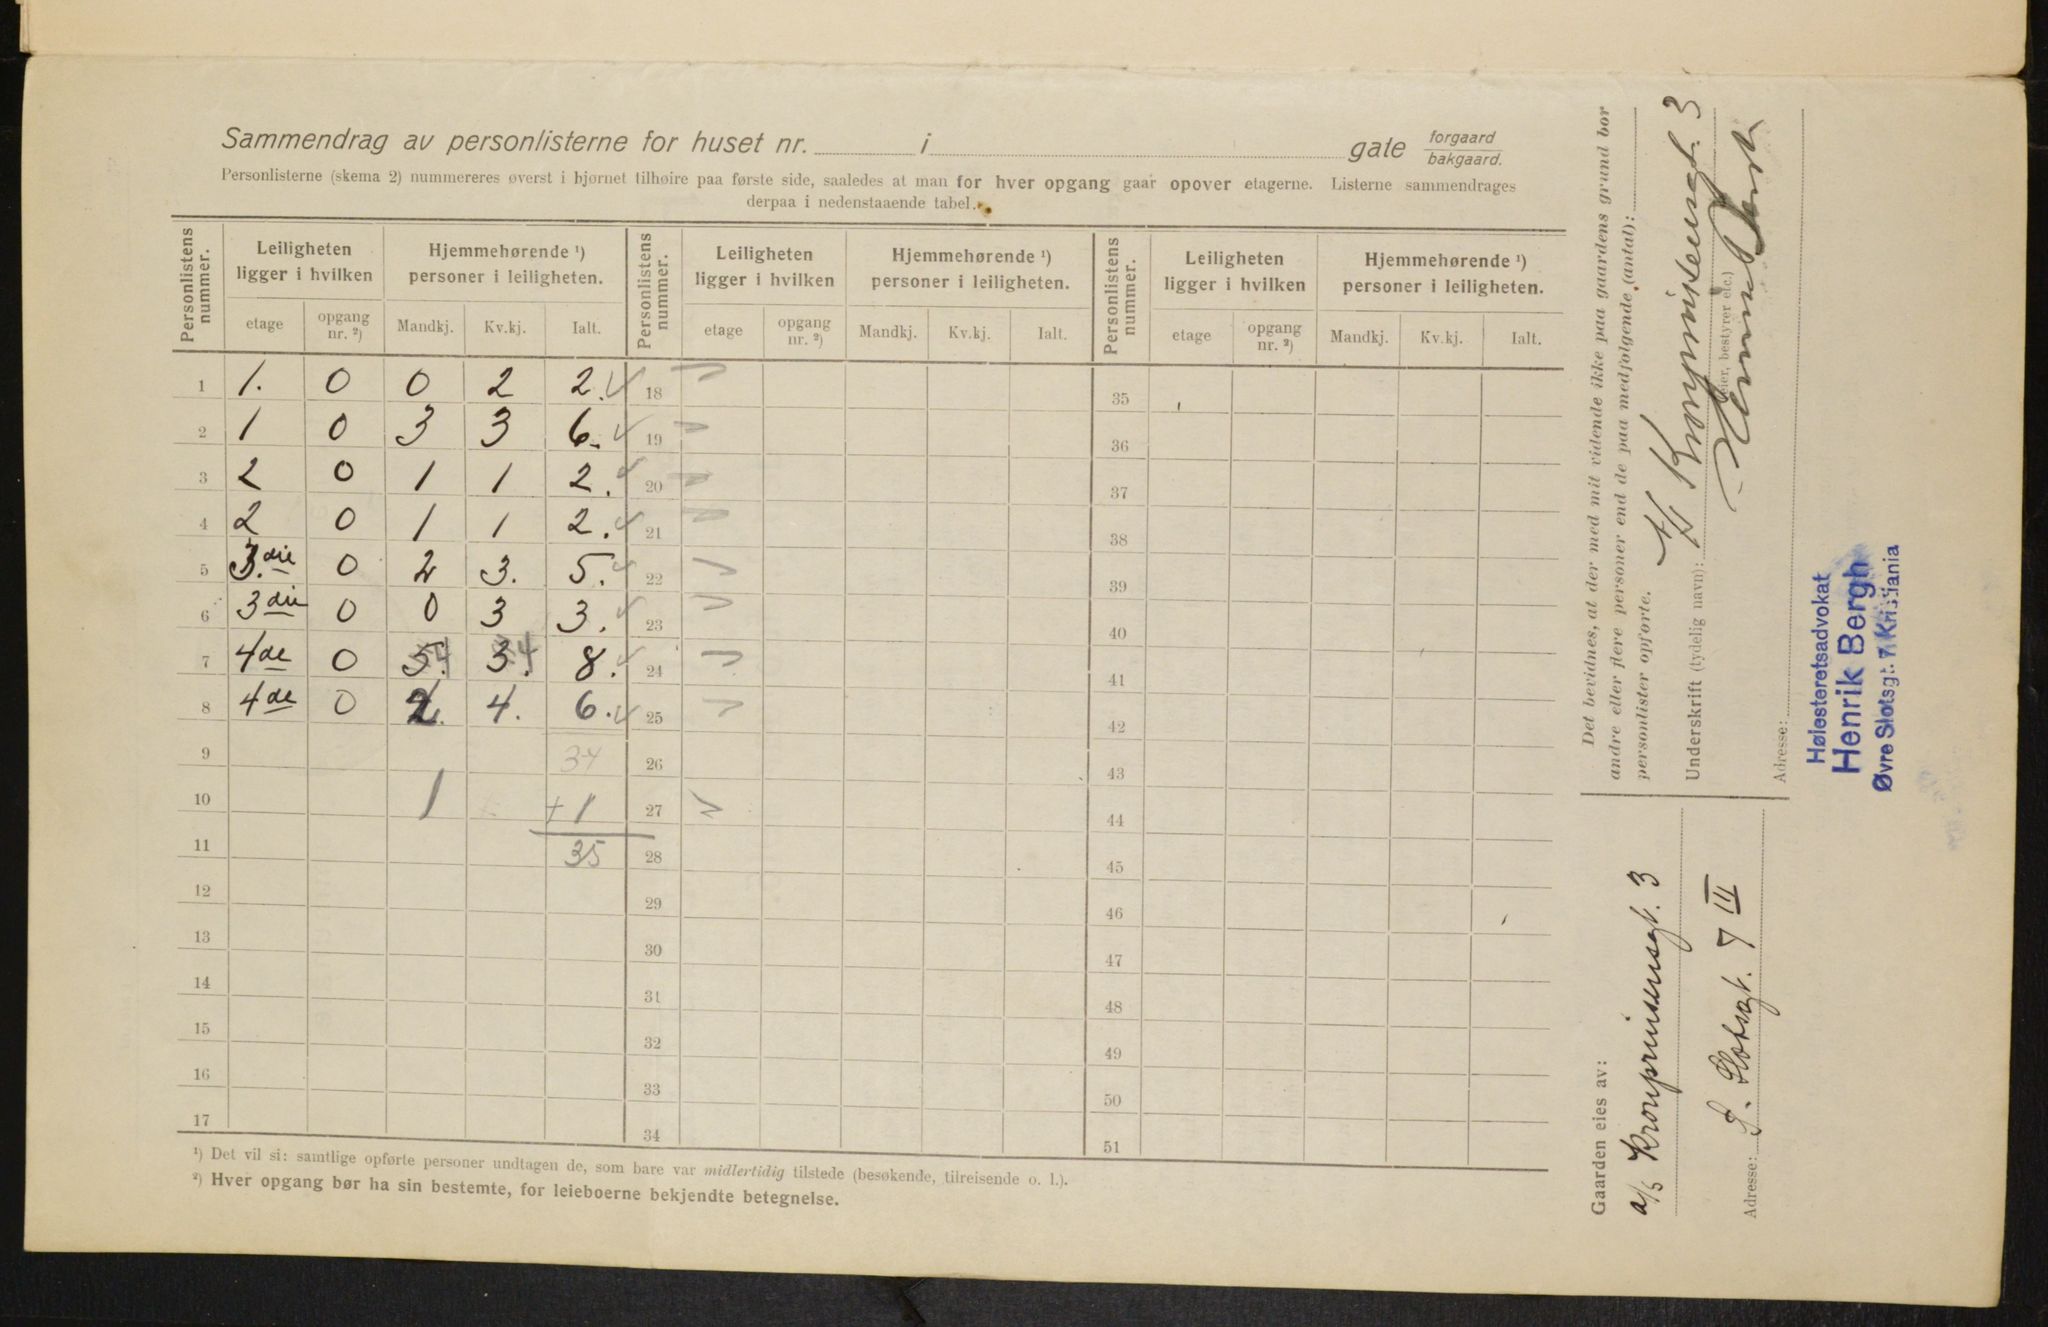 Sammendrag av personlisterne for huset nr. i gate forgaard bakgaard.
Personlisterne (skema 2) nummereres øverst i hjørnet tilhøire paa første side, saaledes at man for hver opgang gaar opover etagerne. Listerne sammendrages
derpaa i nedenstaaende tabel.
Personlistens nummer. Leiligheten ligger i hvilken Hjemmehørende ¹) personer i leiligheten. Personlistens nummer. Leiligheten ligger i hvilken Hjemmehørende ¹) personer i leiligheten. Personlistens nummer. Leiligheten ligger i hvilken Hjemmehørende ¹) personer i leiligheten.
etage opgang nr. ²) Mandkj. Kv.kj. Ialt. etage opgang nr. ²) Mandkj. Kv.kj. Ialt. etage opgang nr. ²) Mandkj. Kv.kj. Ialt.
1 1. 0 0 2 2. 18 35
2 1 0 3 3 6. 19 36
3 2 0 1 1 2. 20 37
4 2 0 1 1 2. 21 38
5 3.die 0 2 3. 5. 22 39
6 3die 0 0 3 3. 23 40
7 4de 0 5. 4 3. 4 8. 24 41
8 4de 0 2. 4. 6. 25 42
9 34 26 43
10 1 + 1 27 44
11 35 28 45
12 29 46
13 30 47
14 31 48
15 32 49
16 33 50
17 34 51
¹) Det vil si: samtlige opførte personer undtagen de, som bare var midlertidig tilstede (besøkende, tilreisende o. l.).
²) Hver opgang bør ha sin bestemte, for leieboerne bekjendte betegnelse.
Det bevidnes, at der med mit vidende ikke paa gaardens grund bor
andre eller flere personer end de paa medfølgende (antal):
personlister opførte.
A/S Kronprinsensgt. 3
Underskrift (tydelig navn):
(eier, bestyrer etc.)
Adresse:
Høiesteretsadvokat
Henrik Bergh
Øvre Slotsgt. 7 Kristiania
Gaarden eies av:
a/s Kronprinsensgt. 3
Adresse: Ø. Slotsgt. 7 III